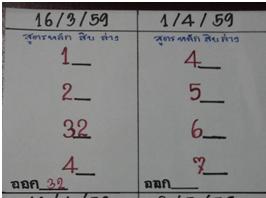 16/3/59
สูตรหลัก สิบ ล่าง
1_
2_
32
4_
ออก 32
1/4/59
สูตรหลัก สิบ ล่าง
4_
5_
6_
7_
ออก ___